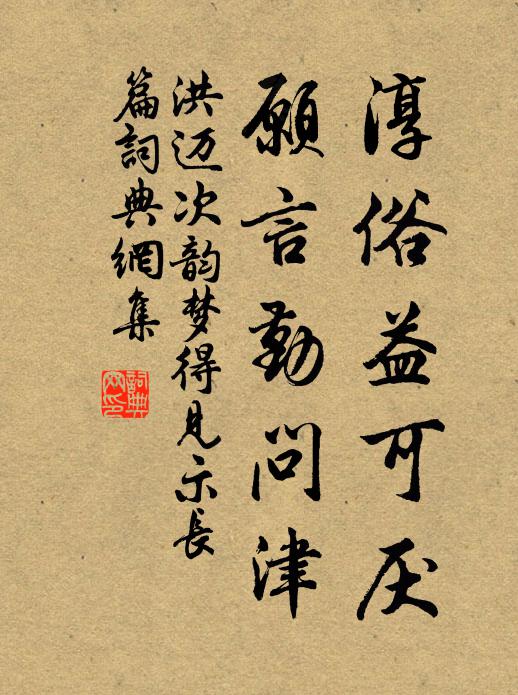 淳俗益可厌
願言勤问津
洪迈次韵梦得见示長
篇詞典網集
詞典
网印